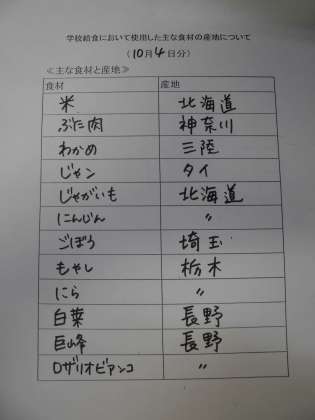 学校給食において使用した主な食材の産地について
(10月4日分)
≪主な食材と産地≫
食材 産地
米 北海道
ぶた肉 神奈川
わかめ 三陸
じャン タイ
じゃがいも 北海道
にんじん 〃
ごぼう 埼玉
もやし 栃木
にら 〃
白葉 長野
巨峰 長野
ロザリオビアンコ 〃